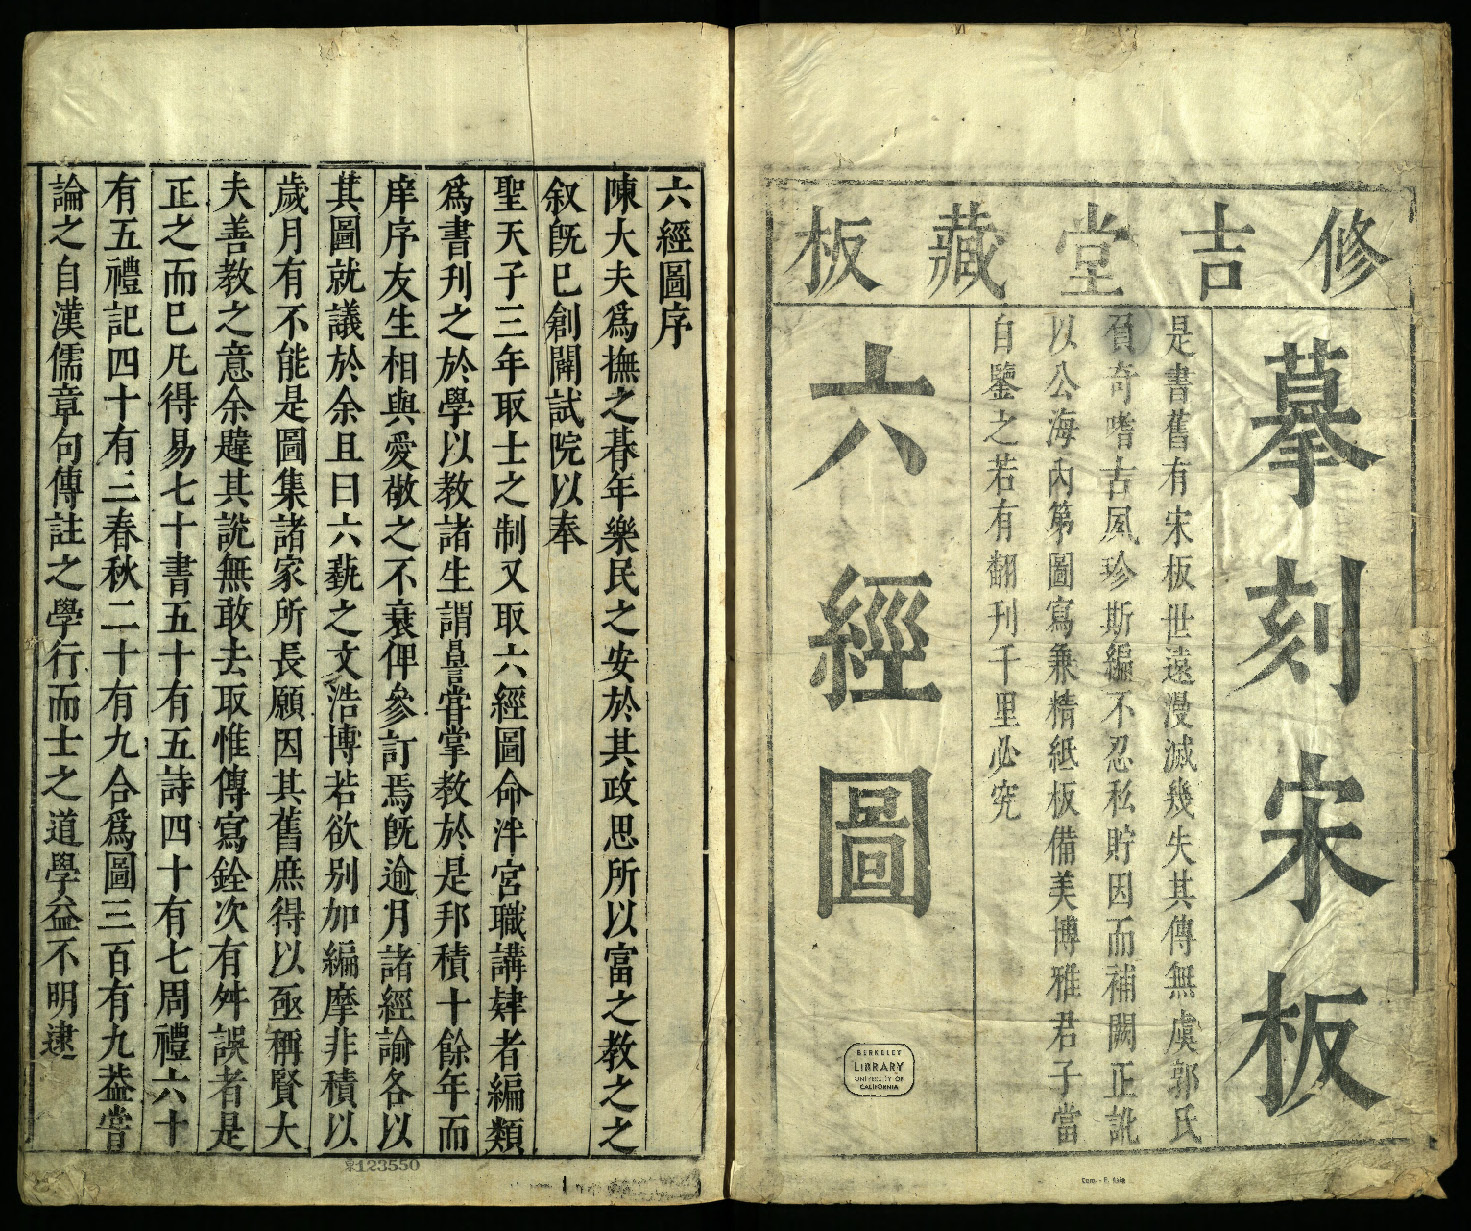 修吉堂藏板
摹刻宋板
是書舊有宋板世遠漫滅幾失其傳無虞郭氏
負奇嗜古夙珍斯編不忍私貯因而補闕正訛
以公海內第圖寫兼精紙板備美博雅君子當
自鑒之若有翻刊千里必究
六經圖
BERKELEY
LIBRARY
UNIVERSITY OF
CALIFORNIA
六經圖序
陳大夫爲撫之朞年樂民之安於其政思所以富之教之之
叙旣巳創闢試院以奉
聖天子三年取士之制又取六經圖命泮宮職講肄者編類
爲書刊之於學以教諸生謂昌言甞掌教於是邦積十餘年而
庠序友生相與愛敬之不衰俾參訂焉旣逾月諸經諭各以
其圖就議於余且曰六藝之文浩博若欲别加編摩非積以
歲月有不能是圖集諸家所長願因其舊庶得以亟稱賢大
夫善教之意余韙其說無敢去取惟傳寫銓次有舛誤者是
正之而巳凡得易七十書五十有五詩四十有七周禮六十
有五禮記四十有三春秋二十有九合爲圖三百有九葢嘗
論之自漢儒章句傳註之學行而士之道學益不明逮
123550